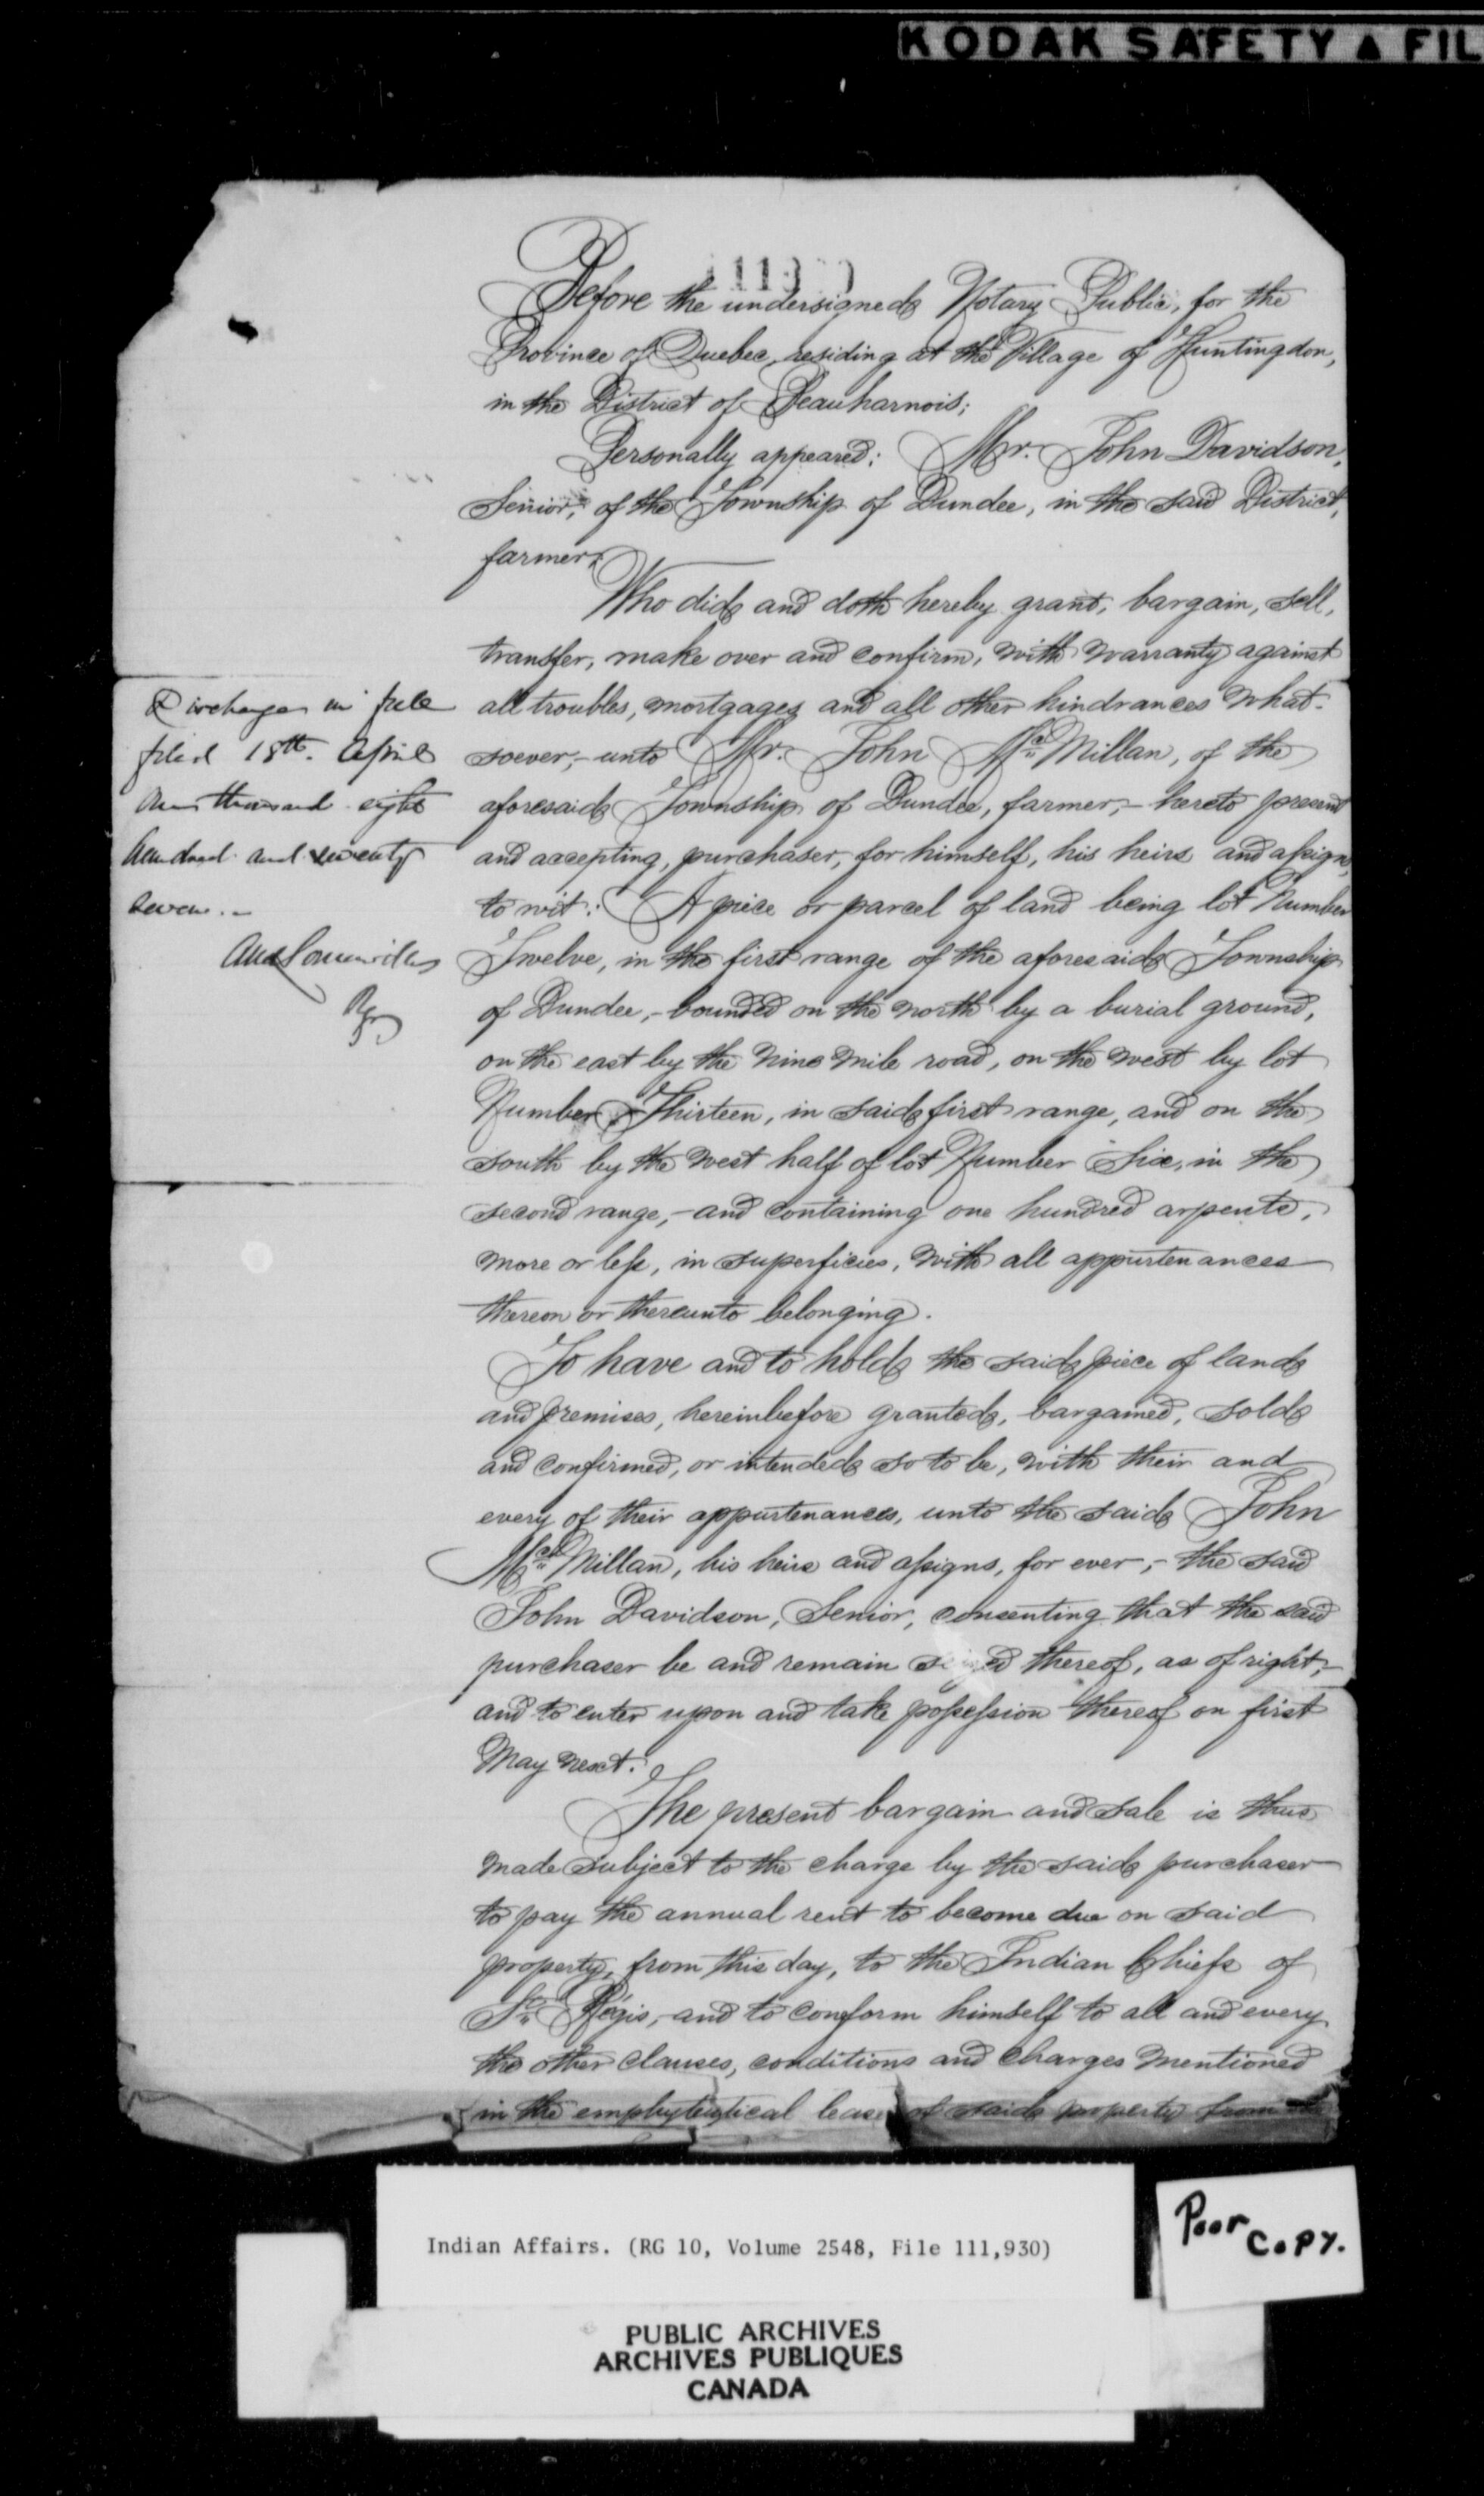 KODAK SAFETY ▲ FIL
Before the undersigned Notary Public, for the
Province of Quebec, residing at the Village of Huntingdon,
in the District of Beauharnois;
Personally appeared: Mr. John Davidson,
Senior, of the Township of Dundee, in the said District,
farmer;
Who did and doth hereby grant, bargain, sell,
transfer, make over and confirm, with warranty against
all troubles, mortgages and all other hindrances what-
soever,- unto Mr. John Mc Millan, of the
aforesaid Township of Dundee, farmer,- hereto present
and accepting, purchaser, for himself, his heirs and assigns,
to wit: A piece or parcel of land being lot Number
Twelve, in the first range of the aforesaid Township
of Dundee,- bounded on the north by a burial ground,
on the east by the Nine Mile road, on the west by lot
Number Thirteen, in said first range, and on the
south by the west half of lot Number Six, in the
second range,- and containing one hundred arpents,
more or less, in superficies, with all appurtenances
thereon or thereunto belonging.
To have and to hold the said piece of land
and premises, hereinbefore granted, bargained, sold
and confirmed, or intended so to be, with their and
every of their appurtenances, unto the said John
Mc Millan, his heirs and assigns, for ever,- the said
John Davidson, Senior, consenting that the said
purchaser be and remain seized thereof, as of right,-
and to enter upon and take possession thereof on first
May next.
The present bargain and sale is thus
made subject to the charge by the said purchaser
to pay the annual rent to become due on said
property, from this day, to the Indian Chiefs of
St. Régis,- and to conform himself to all and every
the other clauses, conditions and charges mentioned
in the emphyteutical lease of said property from
Discharge in full
filed 18th. April
One thousand eight
hundred and seventy
seven.-
Indian Affairs. (RG 10, Volume 2548, File 111,930)
Poor
COPY.
PUBLIC ARCHIVES
ARCHIVES PUBLIQUES
CANADA